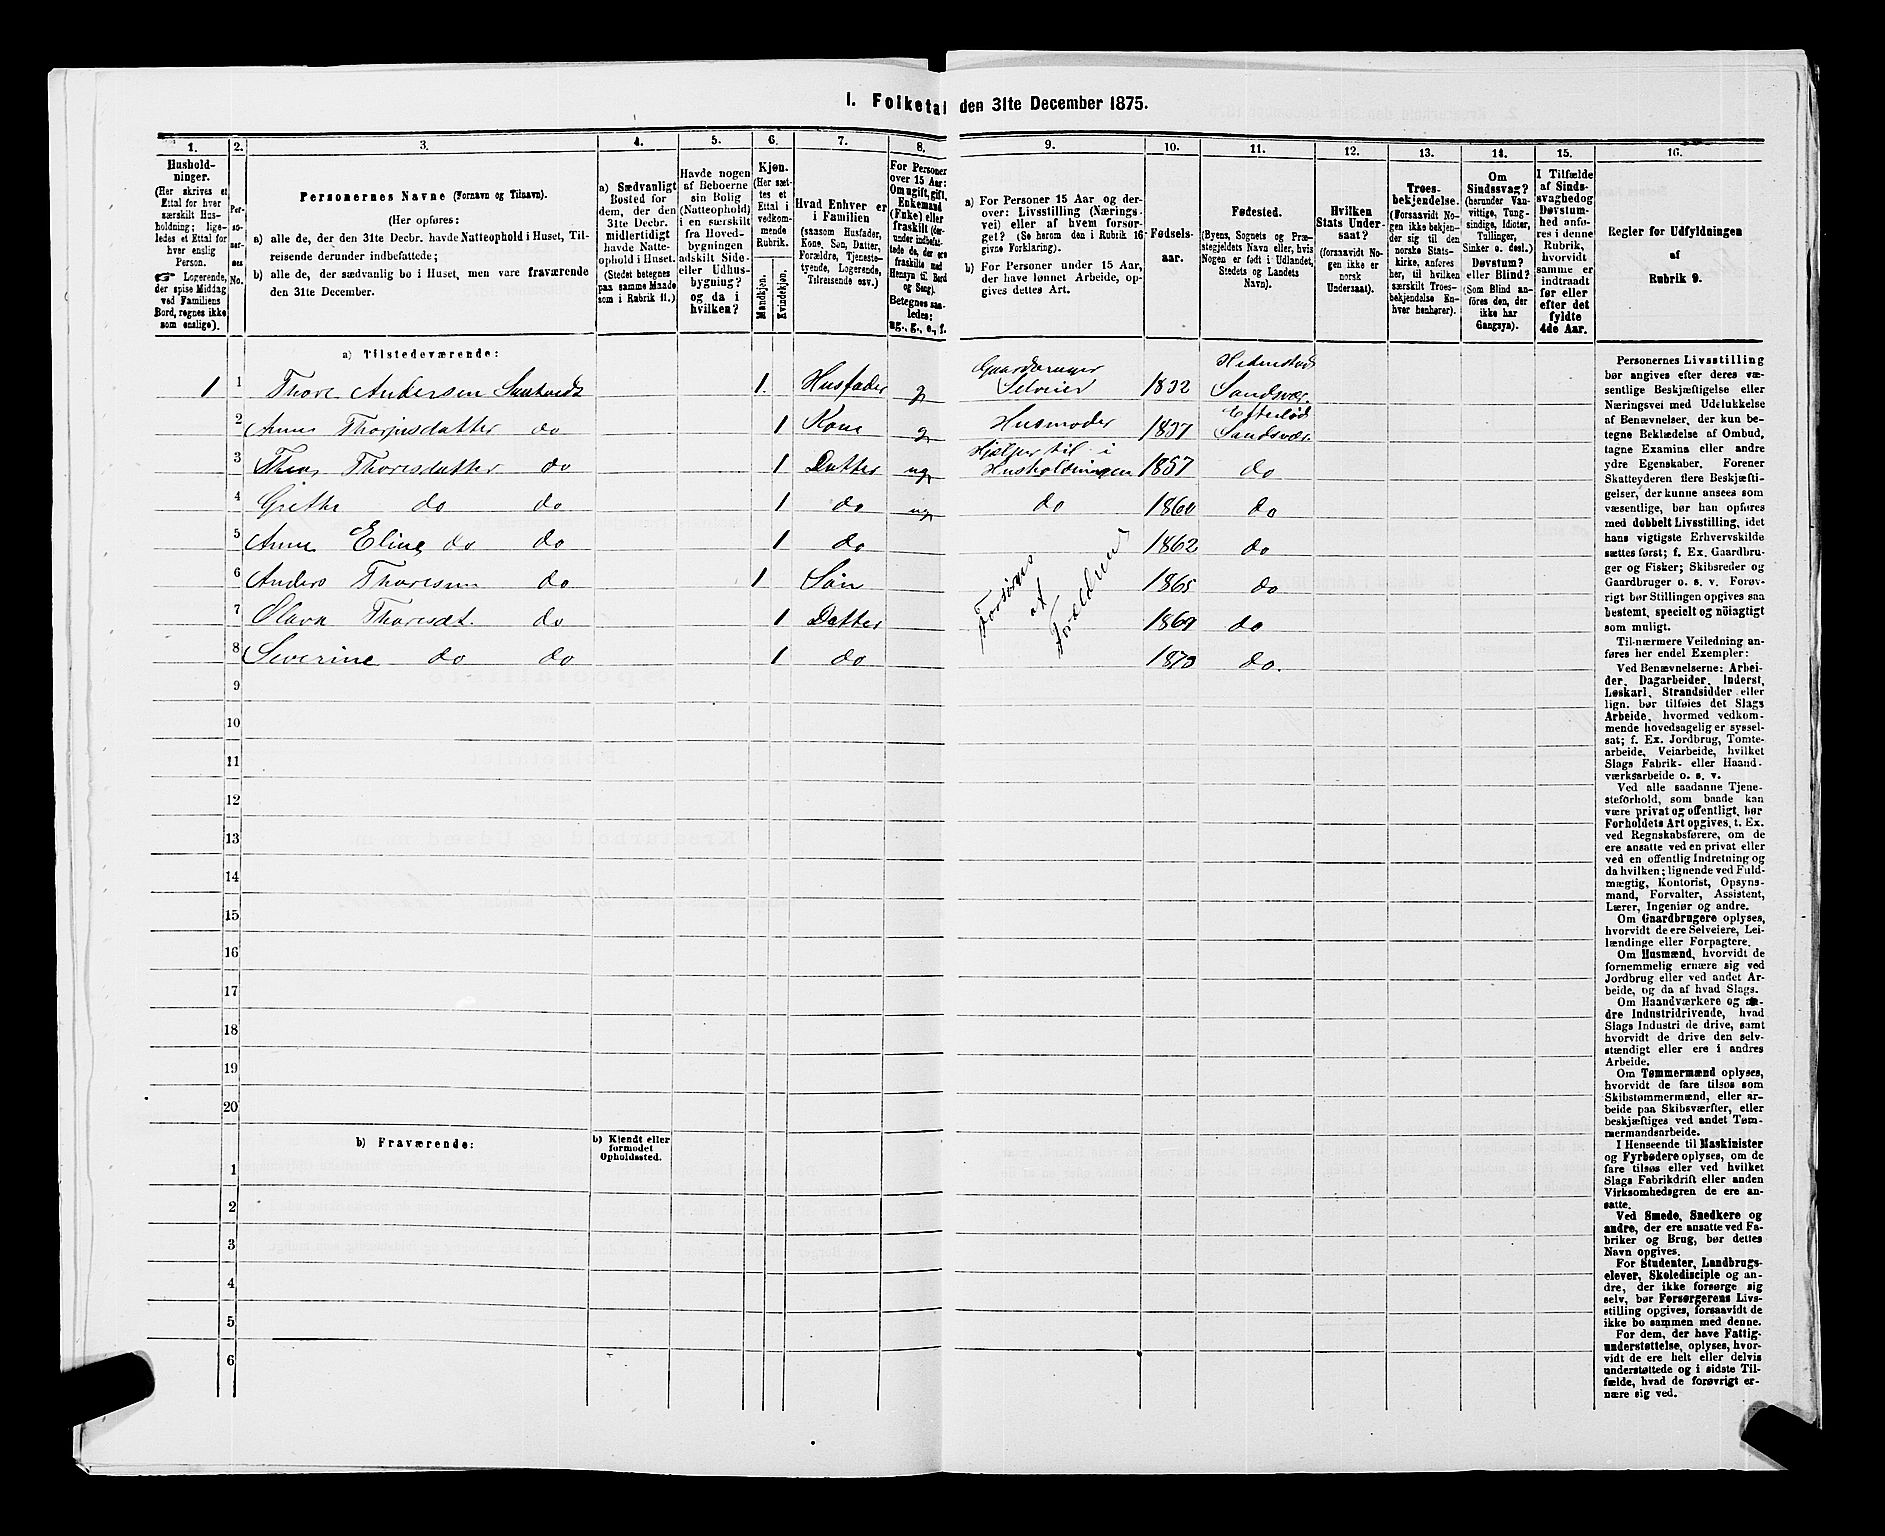 1. Folketal den 31te December 1875.
1. 2. 3. 4. 5. 6. 7. 8. 9. 10. 11. 12. 13. 14. 15. 16.
Hushold-
ninger.
(Her skrives et
Ettal for hver
særskilt Hus-
holdning; lige-
ledes et Ettal for
hver enslig
Person.
☞ Logerende,
der spise Middag
ved Familiens
Bord, regnes ikke
som enslige).
Per-
so-
ner-
nes
No.
Personernes Navne (Fornavn og Tilnavn).
(Her opføres:
a) alle de, der den 31te Decbr. havde Natteophold i Huset, Til-
reisende derunder indbefattede;
b) alle de, der sædvanlig bo i Huset, men vare fraværende
den 31te December.
a) Sædvanligt
Bosted for
dem, der den
31te Decbr.
midlertidigt
havde Natte-
ophold i Huset.
(Stedet betegnes
paa samme Maade
som i Rubrik 11.)
Havde nogen
af Beboerne
sin Bolig
(Natteophold)
i en særskilt
fra Hoved-
bygningen
adskilt Side-
eller Udhus-
bygning?
og da i
hvilken?
Kjøn.
(Her sæt-
tes et
Ettal i
vedkom-
mende
Rubrik.
Mandkjøn.
Kvindekjøn.
Hvad Enhver er
i Familien
(saasom Husfader,
Kone, Søn, Datter,
Forældre, Tjeneste-
tyende, Logerende,
Tilreisende osv.)
For Personer
over 15 Aar:
Om ugift, gift,
Enkemand
(Enke) eller
fraskilt (der-
under indbefat-
tede de, der ere
fraskilte med
Hensyn til Bord
og Seng).
Betegnes saa-
ledes:
ug., g., e., f.
a) For Personer 15 Aar og der-
over: Livsstilling (Nærings-
vei) eller af hvem forsør-
get? (Se herom den i Rubrik 16
givne Forklaring).
b) For Personer under 15 Aar,
der have lønnet Arbeide, op-
gives dettes Art.
Fødsels-
aar.
Fødested.
(Byens, Sognets og Præ-
stegjeldets Navn eller, hvis
Nogen er født i Udlandet,
Stedets og Landets
Navn).
Hvilken
Stats Under-
saat?
(forsaavidt No-
gen ikke er
norsk
Undersaat).
Troes-
bekjendelse.
(Forsaavidt No-
gen ikke bekjen-
der sig til den
norske Stats-
kirke, anføres
her, til hvilken
særskilt Troes-
bekjendelse En-
hver henhører).
Om
Sindssvag?
(herunder Van-
vittige, Tung-
sindige, Idioter,
Tullinger,
Sinker o. desl.)
Døvstum?
eller Blind?
(Som Blind an-
føres den, der
ikke har
Gangsyn).
I Tilfælde
af Sinds-
svaghed og
Døvstum-
hed anfø-
res i denne
Rubrik,
hvorvidt
samme er
indtraadt
før eller
efter det
fyldte
4de Aar.
Regler for Udfyldningen
af
Rubrik 9.
a) Tilstedeværende:
1 1 Thore Andersen 1. Husfader g Gaardbruger Selveier 1832 Hedenstad Sandsvær.
2 Anne do 1 Kone g Husmoder 1837 Eftelød Sandsvær
3 Thoresdatter do 1 Datter ug Hjælper til i Husholdningen 1857 do
4 Grethe do do 1 do ug do 1860 do
5 Anne Eline do do 1 do 1862 do
6 Anders Thoresen do 1 Søn 1865 do
7 Olava Thoresdt. do 1 Datter 1869 do
8 Severine do do 1 do 1873 do.
Forsørges
af
Forældrene
9
10
11
12
13
14
15
16
17
18
19
20
b) Fraværende:
b) Kjendt eller
formodet
Opholdssted.
1
2
3
4
5
6
Personernes Livsstilling
bør angives efter deres væ-
sentlige Beskjæftigelse eller
Næringsvei med Udelukkelse
af Benævnelser, der kun be-
tegne Beklædelse af Ombud,
tagne Examina eller andre
ydre Egenskaber. Forener
Skatteyderen flere Beskjæfti-
gelser, der kunne ansees som
væsentlige, bør han opføres
med dobbelt Livsstilling, idet
hans vigtigste Erhvervskilde
sættes først; f. Ex. Gaardbru-
ger og Fisker; Skibsreder og
Gaardbruger o. s. v. Forøv-
rigt bør Stillingen opgives saa
bestemt, specielt og nöiagtigt
som muligt.
Til nærmere Veiledning an-
føres her endel Exempler:
Ved Benævnelserne: Arbei-
der, Dagarbeider, Inderst,
Løskarl, Strandsidder eller
lign. bør tilføies det Slags
Arbeide, hvormed vedkom-
mende hovedsagelig er syssel-
sat; f. Ex. Jordbrug, Tomte-
arbeide, Veiarbeide, hvilket
Slags Fabrik- eller Haand-
værksarbeide o. s. v.
Ved alle saadanne Tjene-
steforhold, som baade kan
være privat og offentligt, bør
Forholdets Art opgives, t. Ex.
ved Regnskabsførere, om de
ere ansatte ved en privat eller
ved en offentlig Indretning og
da hvilken; lignende ved Fuld-
mægtig, Kontorist, Opsyns-
mand, Forvalter, Assistent,
Lærer, Ingeniør og andre.
Om Gaardbrugere oplyses,
hvorvidt de ere Selveiere, Lei-
lændinge eller Forpagtere.
Om Husmænd, hvorvidt de
fornemmelig ernære sig ved
Jordbrug eller ved andet Ar-
beide, og da af hvad Slags.
Om Haandværkere og an-
dre Industridrivende, hvad
Slags Industri de drive, samt
hvorvidt de drive den selv-
stændigt eller ere i andres
Arbeide.
Om Tømmermænd oplyses,
hvorvidt de fare tilsøs som
Skibstømmermænd, eller ar-
beide paa Skibsværfter, eller
beskjæftiges ved andet Tøm-
mermandsarbeide.
I Henseende til Maskinister
og Fyrbødere oplyses, om de
fare tilsøs eller ved hvilket
Slags Fabrikdrift eller anden
Virksomhedsgren de ere an-
satte.
Ved Smede, Snedkere og
andre, der ere ansatte ved Fa-
briker og Brug, bør dettes
Navn opgives.
For Studenter, Landbrugs-
elever, Skoledisciple og an-
dre, der ikke forsørge sig
selv, bør Forsørgerens Livs-
stilling opgives, forsaavidt de
ikke bo sammen med denne.
For dem, der have Fattig-
understøttelse, oplyses, hvor-
vidt de ere helt eller delvis
understøttede og i sidste Til-
fælde, hvad de forøvrigt er-
nære sig ved.